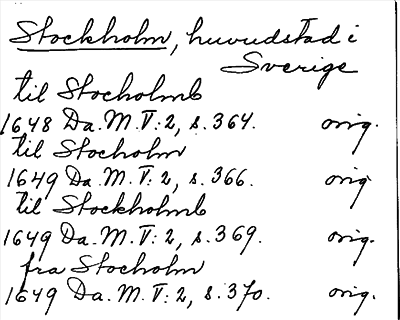 Stockholm, huvudstad i
Sverige
til Stocholmb
1648 Da. M. V: 2, s. 364. orig.
til Stocholm
1649 Da. M. V: 2, s. 366. orig.
til Stockholmb
1649 Da. M. V: 2, s. 369. orig.
fra Stocholm
1649 Da. M. V: 2, s. 370. orig.